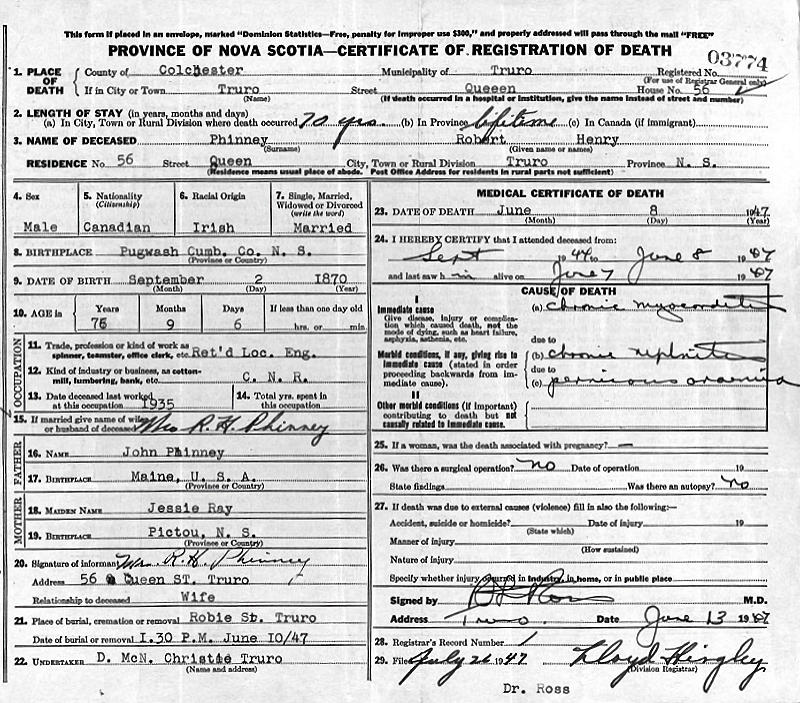 This form if placed in an envelope, marked "Dominion Statistics—Free, penalty for improper use $300," and properly addressed will pass through the mail "FREE"
PROVINCE OF NOVA SCOTIA—CERTIFICATE OF REGISTRATION OF DEATH
03774
1. PLACE OF DEATH { County of Colchester Municipality of Truro Registered No.
(For use of Registrar General only)
If in City or Town Truro Street Queeen House No. 56
(Name) (If death occurred in a hospital or institution, give the name instead of street and number)
2. LENGTH OF STAY (in years, months and days)
(a) In City, Town or Rural Division where death occurred 70 yrs. (b) In Province lifetime (c) In Canada (if immigrant)
3. NAME OF DECEASED Phinney Robert Henry
(Surname) (Given name or names)
RESIDENCE No. 56 Street Queen City, Town or Rural Division Truro Province N. S.
(Residence means usual place of abode. Post Office Address for residents in rural parts not sufficient)
4. Sex
Male
5. Nationality
(Citizenship)
Canadian
6. Racial Origin
Irish
7. Single, Married, Widowed or Divorced
(write the word)
Married
8. BIRTHPLACE Pugwash Cumb. Co. N. S.
(Province or Country)
9. DATE OF BIRTH September 2 1870
(Month) (Day) (Year)
10. AGE in Years Months Days If less than one day old
76 9 6 hrs. or min.
OCCUPATION
11. Trade, profession or kind of work as spinner, teamster, office clerk, etc. Ret'd Loc. Eng.
12. Kind of industry or business, as cotton-mill, lumbering, bank, etc. C. N. R.
13. Date deceased last worked at this occupation 1935
14. Total yrs. spent in this occupation
15. If married give name of wife or husband of deceased Mrs R. H. Phinney
FATHER
16. NAME John Phinney
17. BIRTHPLACE Maine, U. S. A.
(Province or Country)
MOTHER
18. MAIDEN NAME Jessie Ray
19. BIRTHPLACE Pictou, N. S.
(Province or Country)
20. Signature of informant Mrs. R. H. Phinney
Address 56 Queen ST. Truro
Relationship to deceased Wife
21. Place of burial, cremation or removal Robie St. Truro
Date of burial or removal 1.30 P.M. June 10/47
22. UNDERTAKER D. McN. Christie Truro
(Name and address)
MEDICAL CERTIFICATE OF DEATH
23. DATE OF DEATH June 8 1947
(Month) (Day) (Year)
24. I HEREBY CERTIFY that I attended deceased from:
Sept 19 to June 8 1947
and last saw h im alive on June 7 1947
CAUSE OF DEATH
I
Immediate cause
Give disease, injury or complication which caused death, not the mode of dying, such as heart failure, asphyxia, asthenia, etc.
(a) chronic myocarditis
due to
Morbid conditions, if any, giving rise to immediate cause (stated in order proceeding backwards from immediate cause).
(b) chronic nephritis
due to
(c) pernicious anaemia
II
Other morbid conditions (if important) contributing to death but not causally related to immediate cause.
25. If a woman, was the death associated with pregnancy? —
26. Was there a surgical operation? no Date of operation 19
State findings Was there an autopsy? no
27. If death was due to external causes (violence) fill in also the following:—
Accident, suicide or homicide? Date of injury 19
(State which)
Manner of injury
(How sustained)
Nature of injury
Specify whether injury occurred in industry, in home, or in public place
Signed by Ross M.D.
Address Truro. Date June 13 1947
28. Registrar's Record Number 1
29. Filed July 26 1947 Lloyd Hingley
(Division Registrar)
Dr. Ross